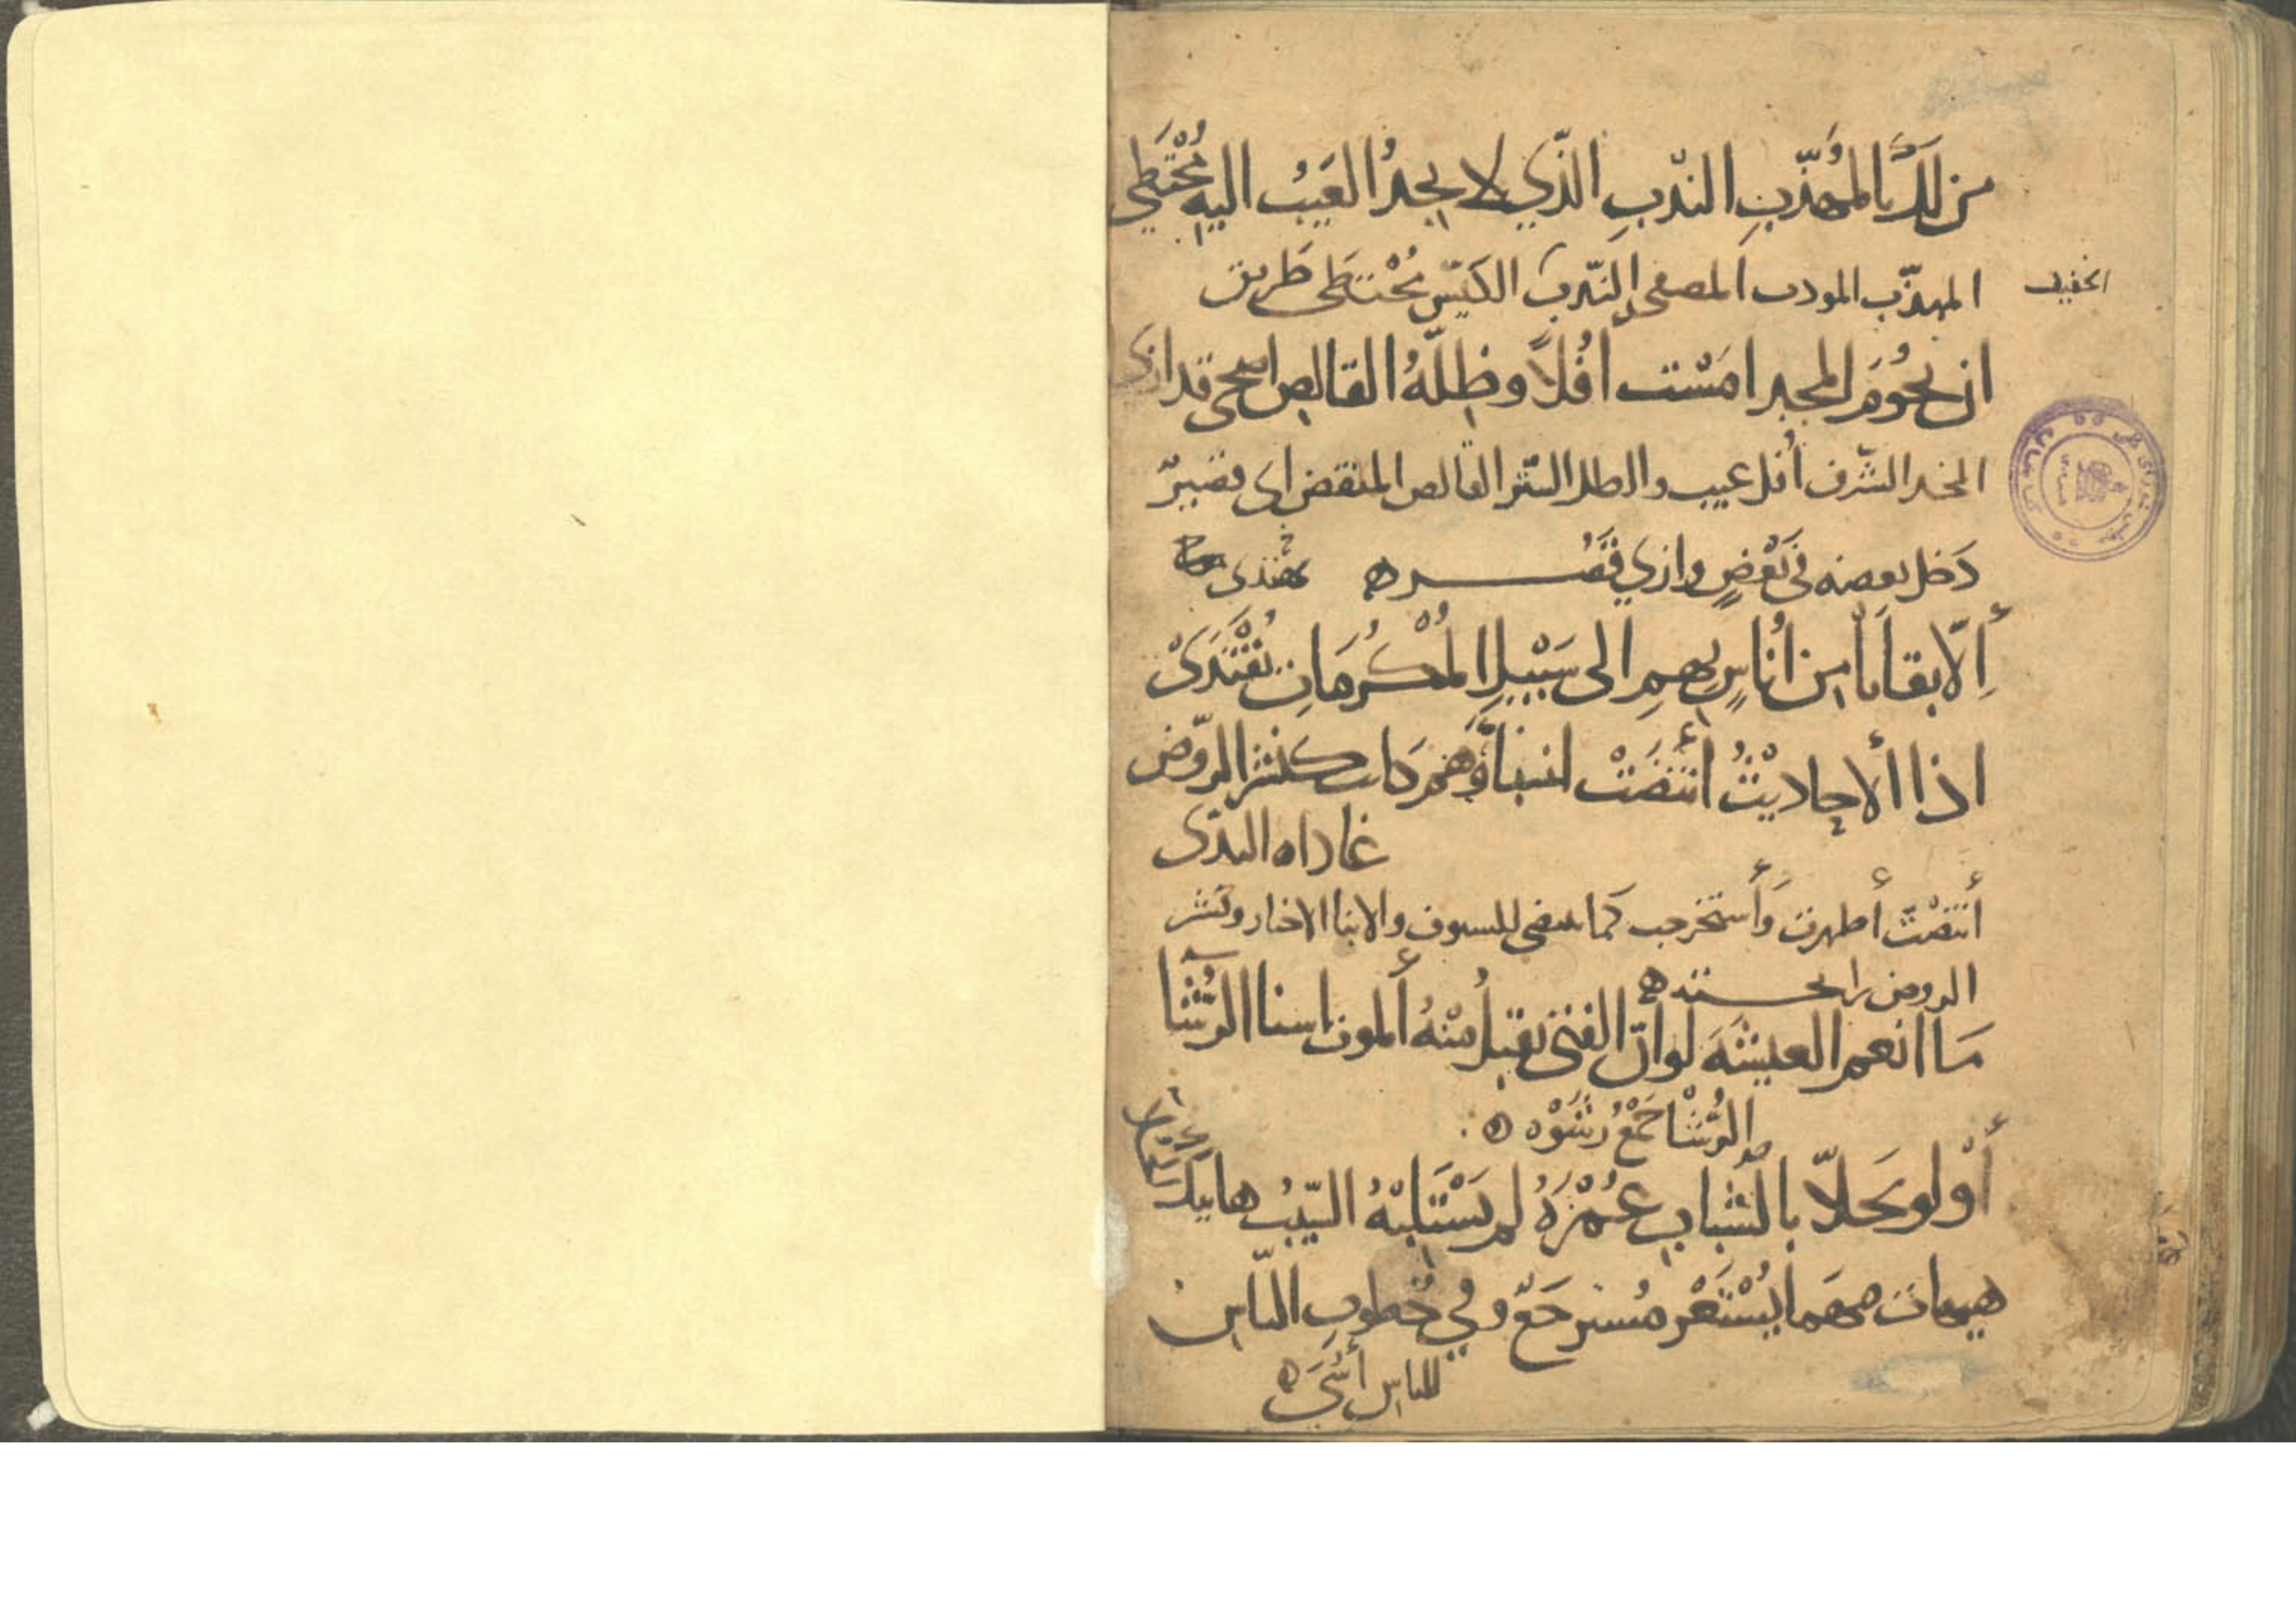 مَن لكَ بالمُهَذَّبِ الندْبِ الذّي لا يجدُ العَيْبُ اليهِ مُخْتَطى
الخفيف
المهذّب المودب المصفى والنّدبَ الكَيّس مُخْتَطى طَريق
ان نجُومَ المجد امَسْت اُفُلاً وظِلّهُ القالص اضحى قد ازى
المجد الشّرف اُفل غيب والظل الستر القالص المنقض اى
دَخل بعضه فى بَعْضٍ وازي قَصُره
أِلّا بقايَا من اُناسٍ بِهمِ الى سَبْيلِ المْكُرمَاتِ يُقْتَدَىْ
اذا الأحاديْثُ أنتَضَتْ انبَاءَهم كانت كنشر الروّض
غاداه الندّى
أنتضْتْ أظهرت وَأستخرجت كما ينتضى السيوف والانبا الاخبار ونشر
الروض رايحتــه
مَا انعم العيشَهَ لو انّ الفتى يَقبلُ مْنهُ ألموت اسنا الرُّشَا
الرُّشْا جَمْعُ رَشْوْه
أوْ لو تحَلاّ بالشَبابِ عُمْرَهُ لم يَسْتَلبْهُ الشّيبُ هاتيك
هيهات مهما يُسْتَعْر مُسترجَعّ وفي خُطوبِ الناسِ
للناس أُسَى